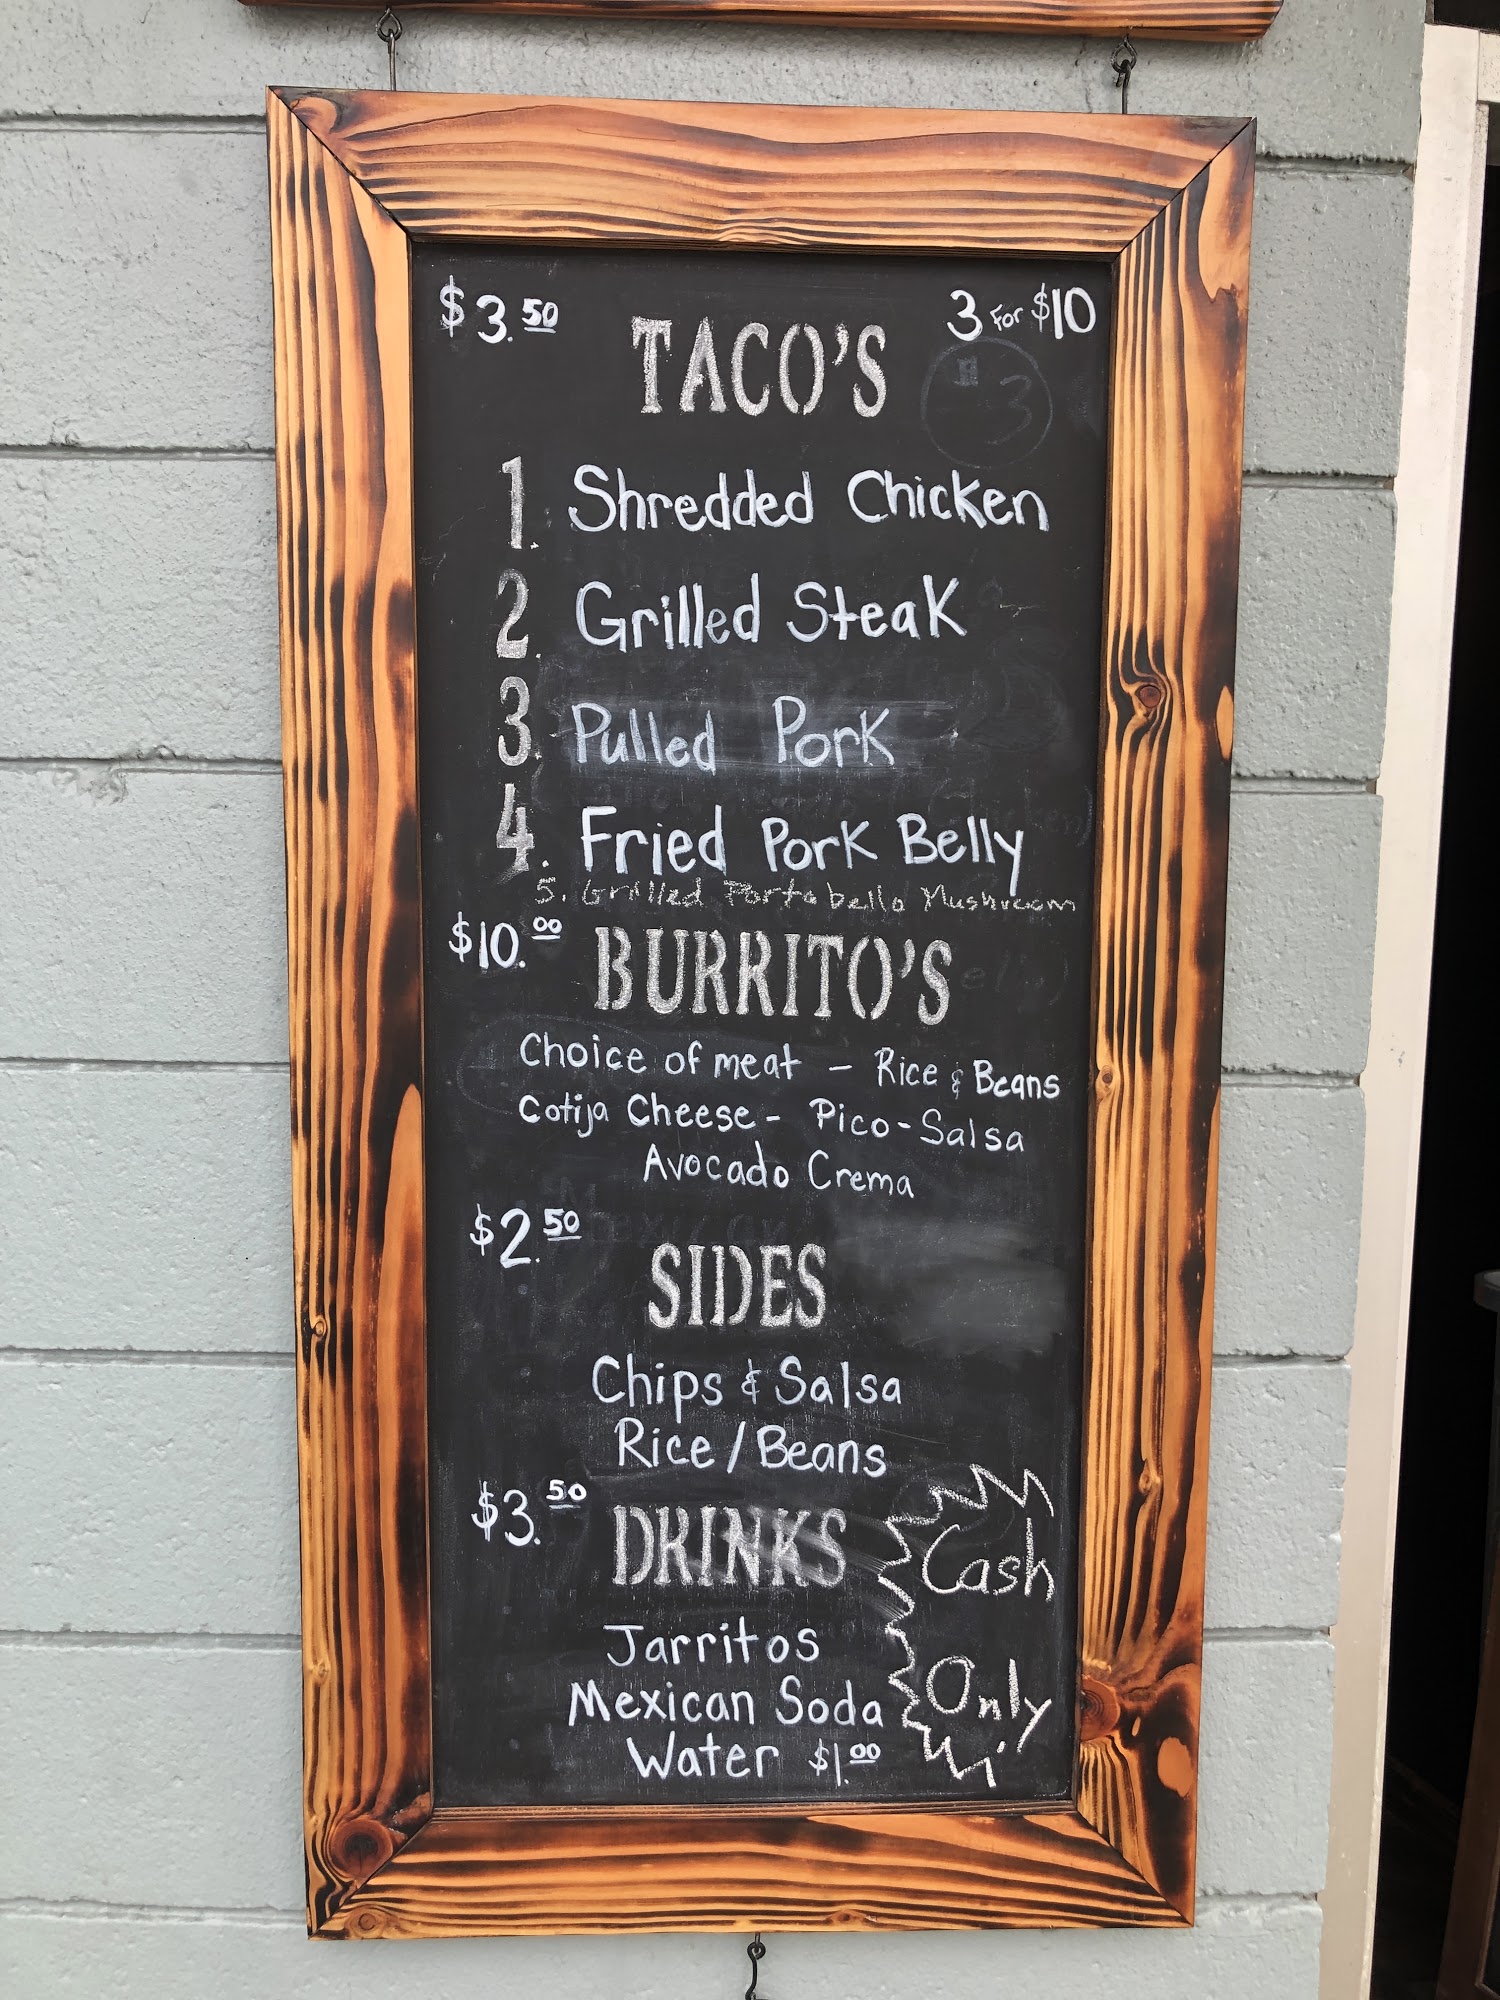 $3.50 TACO'S 3 For $10
1. Shredded Chicken
2. Grilled Steak
3. Pulled Pork
4. Fried Pork Belly
5. Grilled Portabello Mushroom
$10.00 BURRITO'S
Choice of meat - Rice & Beans
Cotija Cheese - Pico - Salsa
Avocado Crema
$2.50 SIDES
Chips & Salsa
Rice / Beans
$3.50 DRINKS
Jarritos
Mexican Soda
Water $1.00
Cash
Only